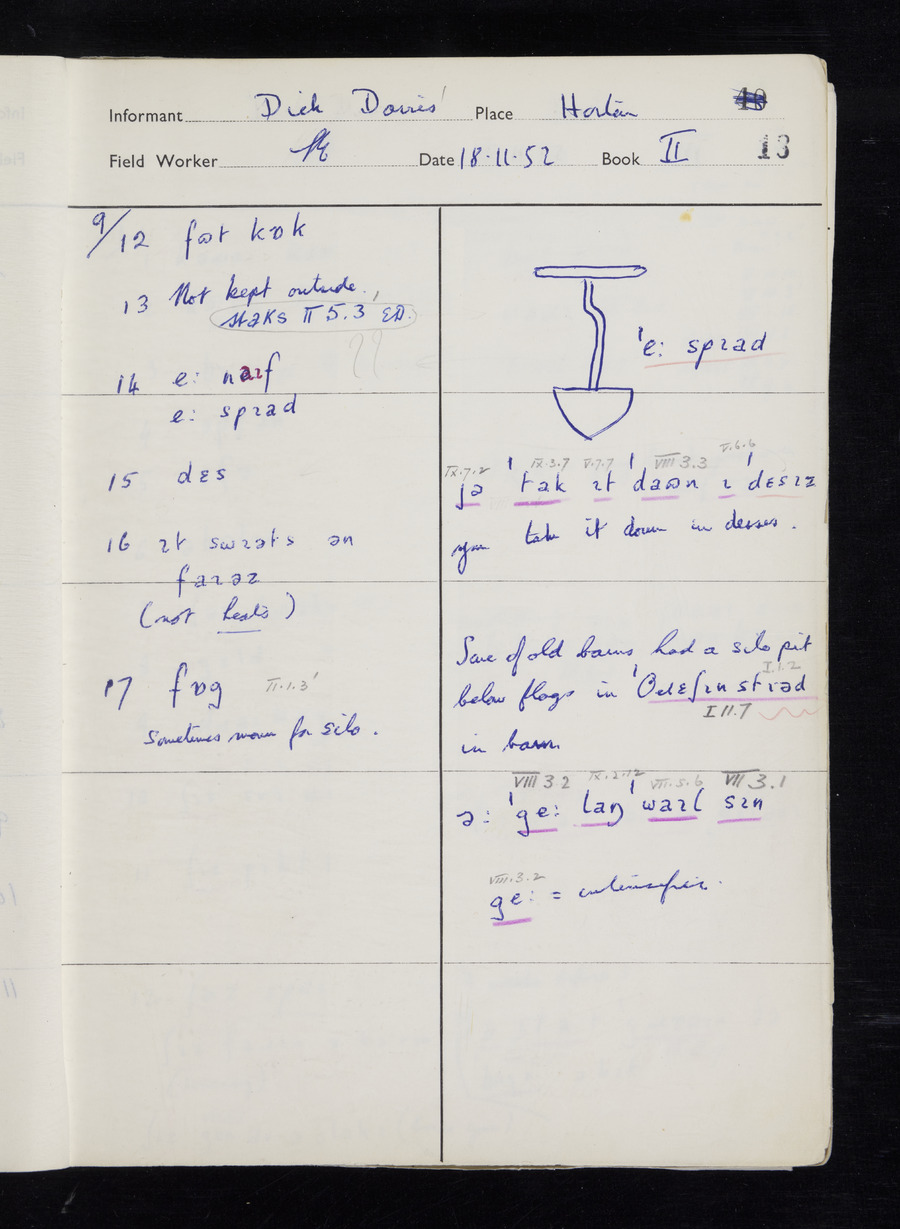 Informant Dick Place Horton
Field Worker Date 18.11.52 Book II 13
9/12 fɷt kɒk
13 Not kept outside.
staks II 5.3
14 e: naɪf
e: spɪad
15 dɛs
16 ɪt swɪəts ən
faɪəz
(not )
17 fɒg II.1.3
Sometimes mown for silo.
'e: spɪad
IX.7.2 IX.3.7 V.7.7 VIII 3.3 V.6.6
jə 'tak ɪt 'daɷn ɪ 'dɛsɪz
you take it down in desses.
of old barns had a silo pit
I.1.2
below flags in
I 11.7
in barn
VIII 3.2 IX.2.12 VII.5.6 VII 3.1
ə: 'ge: laŋ 'waɪl sɪn
VIII.3.2
ge: = intensifier.